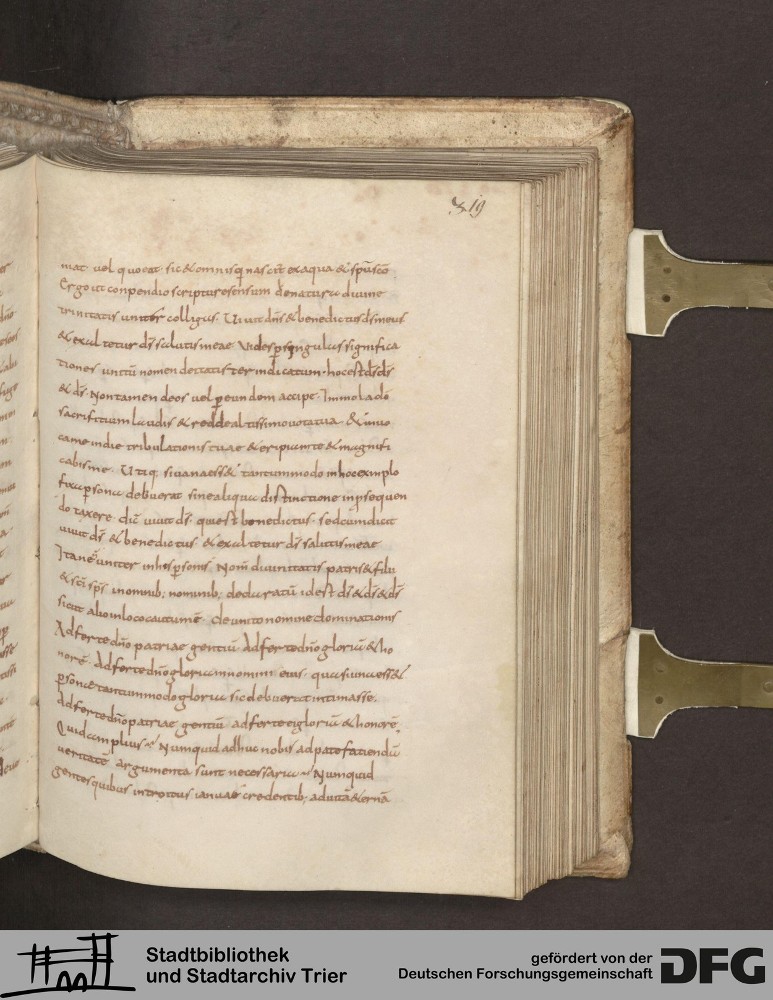 19
mat uel quo eat. sic & omnis q nascit ex aqua & spu sco
Ergo ut conpendio scripturę sensum de natura diuine
trinitatis uniter colligas. Uiuit dns & benedictus ds meus
& exaltetur ds salutis meae. Vides p singulas significa
tiones unitū nomen deitatis ter indicatum. hoc est ds ds
& ds. Non tamen deos uel p eundem accipe. Immola do
sacrificium laudis & redde altissimo uota tua. & inuo
ca me in die tribulationis tuae & eripiam te & magnifi
cabis me. Utiq; si una ess& tantummodo in hoc exemplo
fixa psona debuerat sine aliqua distinctione in psequen
do taxere. dū uiuit ds. qui est benedictus. sed cum dicit
uiuit ds & benedictus. & exaltetur ds salutis meae
Itane uniter in his psonis. Nom diuinitatis patris & filii
& sci sps in omnib; nominib; declaratū id est ds & ds & ds
sicut alio in loco cautum ē. de unito nomine dominationis
Adferte dno patriae gentiū. Adferte dno gloriā & ho
norē. Adferte dno gloriam nomini eius. qua si una ess&
psona tantummodo gloria sic debuerat intimasse.
Adferte dno patriae gentiū adferte ei gloriā & honorē.
Quid amplius Numquid adhuc nobis ad patefaciendā
ueritatē argumenta sunt necessaria Numquid
gentes quibus introitus ianuae credentib; ad uitā & ernā
Stadtbibliothek
und Stadtarchiv Trier
gefördert von der
Deutschen Forschungsgemeinschaft
DFG